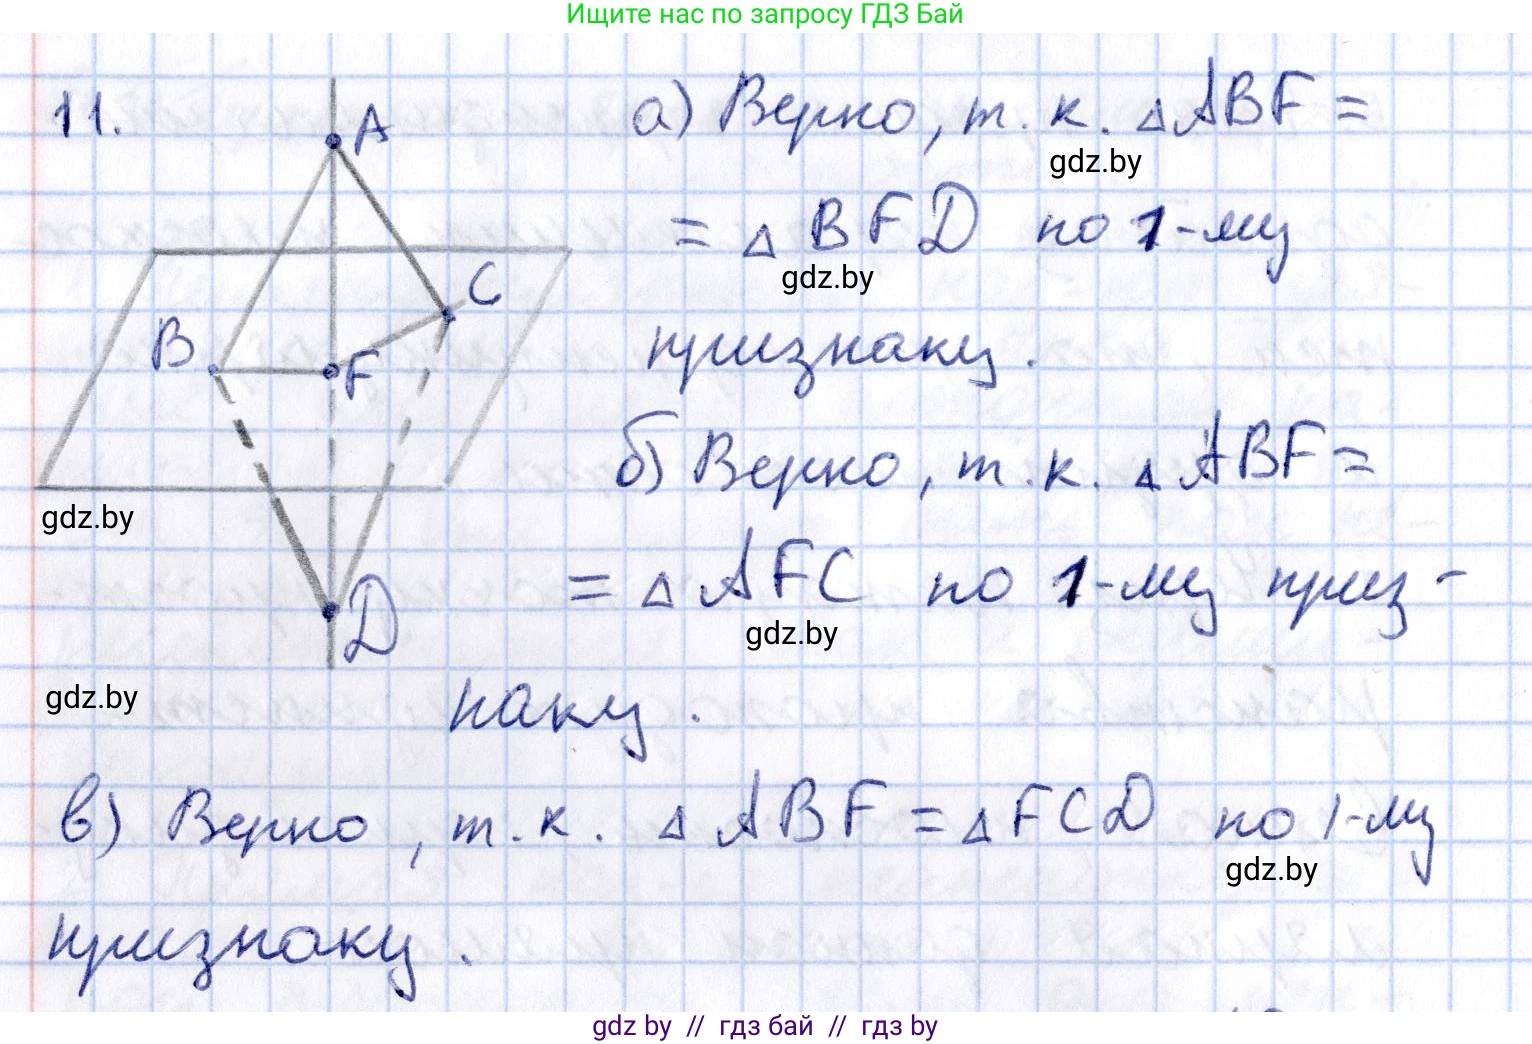 Ищите нас по запросу ГДЗ Бай
11.
A
C
B
F
D
а) Верно, т. к. △ ABF =
gdz.by
= △ BFD по 1-му
gdz.by
признаку.
б) Верно, т. к. △ ABF =
gdz.by
= △ AFC по 1-му приз-
gdz.by
gdz.by
наку.
в) Верно, т. к. △ ABF = △ FCD по 1-му
gdz.by
признаку.
gdz by // гдз бай // гдз by